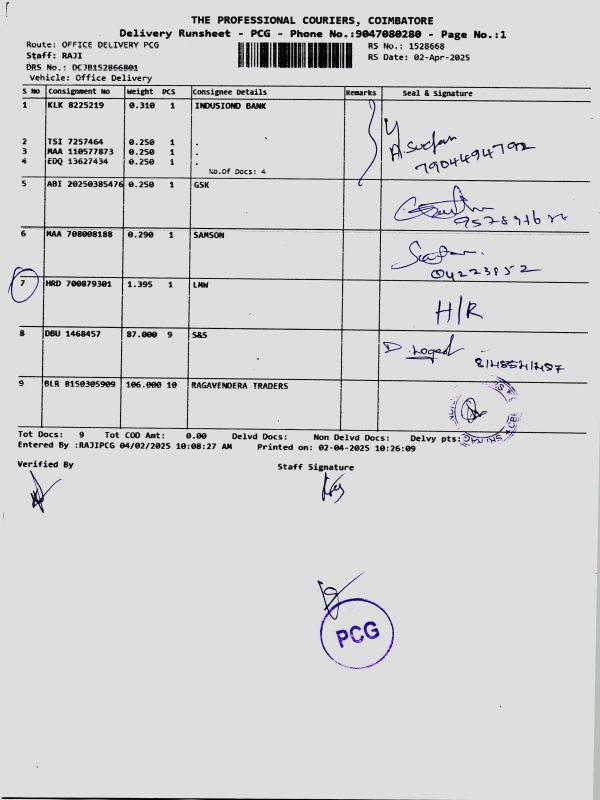 THE PROFESSIONAL COURIERS, COIMBATORE
Delivery Runsheet - PCG - Phone No.:9047080280 - Page No.:1
Route: OFFICE DELIVERY PCG RS No.: 1528668
Staff: RAJI RS Date: 02-Apr-2025
DRS No.: DCJB152866801
Vehicle: Office Delivery
S No Consignment No Weight PCS Consignee Details Remarks Seal & Signature
1 KLK 8225219 0.310 1 INDUSIOND BANK
2 TSI 7257464 0.250 1 .
3 MAA 110577873 0.250 1 .
4 EDQ 13627434 0.250 1 .
7904494792
No.Of Docs: 4
5 ABI 20250385476 0.250 1 GSK
6 MAA 708008188 0.290 1 SAMSON
04223852
7 HRD 700879301 1.395 1 LMW
H/R
8 DBU 1468457 87.000 9 S&S
D.
9 BLR 8150305909 106.000 10 RAGAVENDERA TRADERS
Tot Docs: 9 Tot COD Amt: 0.00 Delvd Docs: Non Delvd Docs: Delvy pts:
Entered By :RAJIPCG 04/02/2025 10:08:27 AM Printed on: 02-04-2025 10:26:09
Verified By Staff Signature
PCG